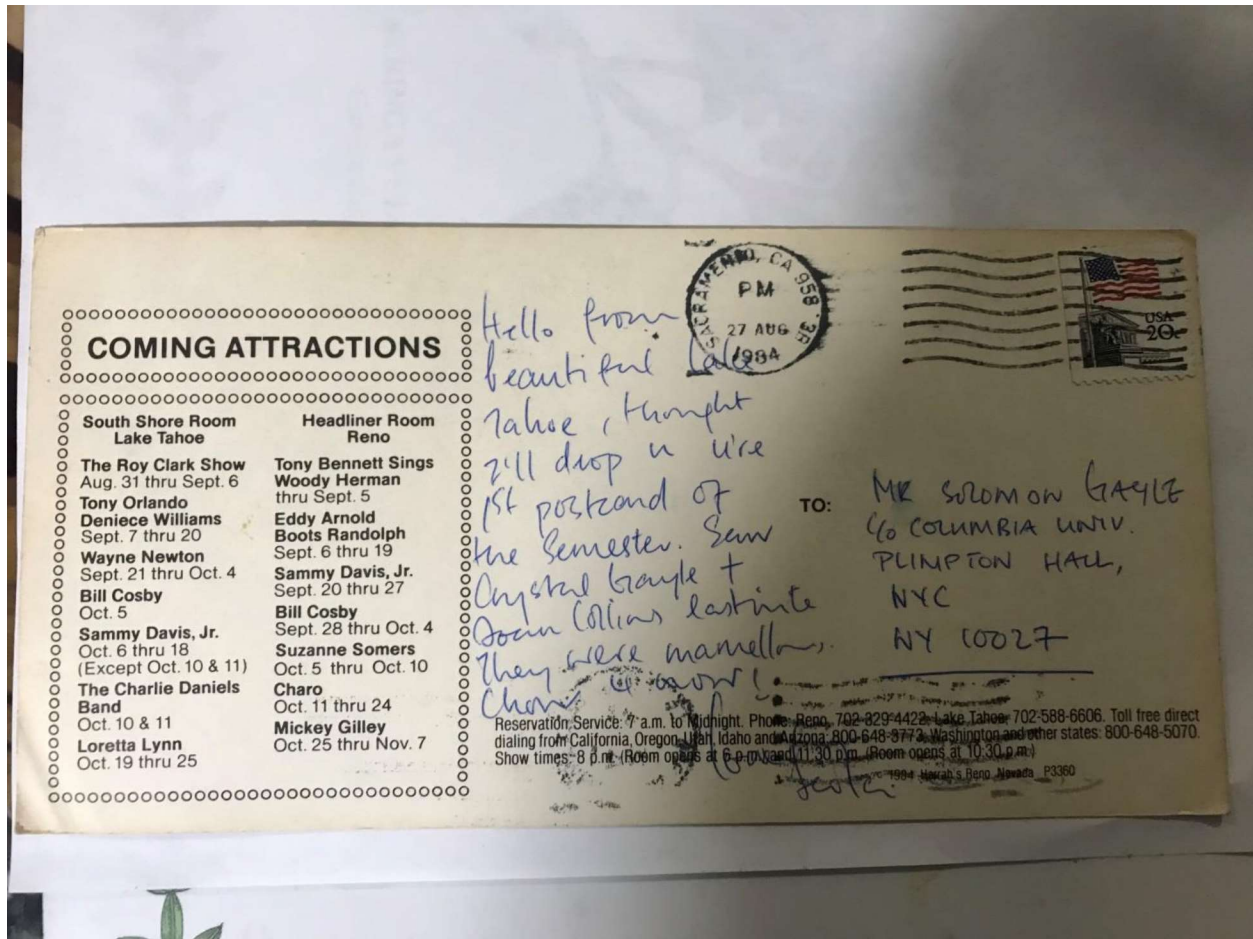 COMING ATTRACTIONS
South Shore Room
Lake Tahoe
The Roy Clark Show
Aug. 31 thru Sept. 6
Tony Orlando
Deniece Williams
Sept. 7 thru 20
Wayne Newton
Sept. 21 thru Oct. 4
Bill Cosby
Oct. 5
Sammy Davis, Jr.
Oct. 6 thru 18
(Except Oct. 10 & 11)
The Charlie Daniels
Band
Oct. 10 & 11
Loretta Lynn
Oct. 19 thru 25
Headliner Room
Reno
Tony Bennett Sings
Woody Herman
thru Sept. 5
Eddy Arnold
Boots Randolph
Sept. 6 thru 19
Sammy Davis, Jr.
Sept. 20 thru 27
Bill Cosby
Sept. 28 thru Oct. 4
Suzanne Somers
Oct. 5 thru Oct. 10
Charo
Oct. 11 thru 24
Mickey Gilley
Oct. 25 thru Nov. 7
Hello from
beautiful Lake
Tahoe, thought
I'll drop u
1st postcard of
the Semester. Saw
Crystal Gayle +
Joan Collins lastnite
They were
SACRAMENTO, CA 958
PM
27 AUG
1984
USA
20c
TO:
MR SOLOMON GAYLE
c/o COLUMBIA UNIV.
PLIMPTON HALL,
NYC
NY 10027
Reservation Service: 7 a.m. to Midnight. Phone: Reno, 702-329-4422; Lake Tahoe, 702-588-6606. Toll free direct
dialing from California, Oregon, Utah, Idaho and Arizona: 800-648-3773; Washington and other states: 800-648-5070.
Show times: 8 p.m. (Room opens at 6 p.m.) and 11:30 p.m. (Room opens at 10:30 p.m.)
© 1984 Harrah's Reno, Nevada P3360